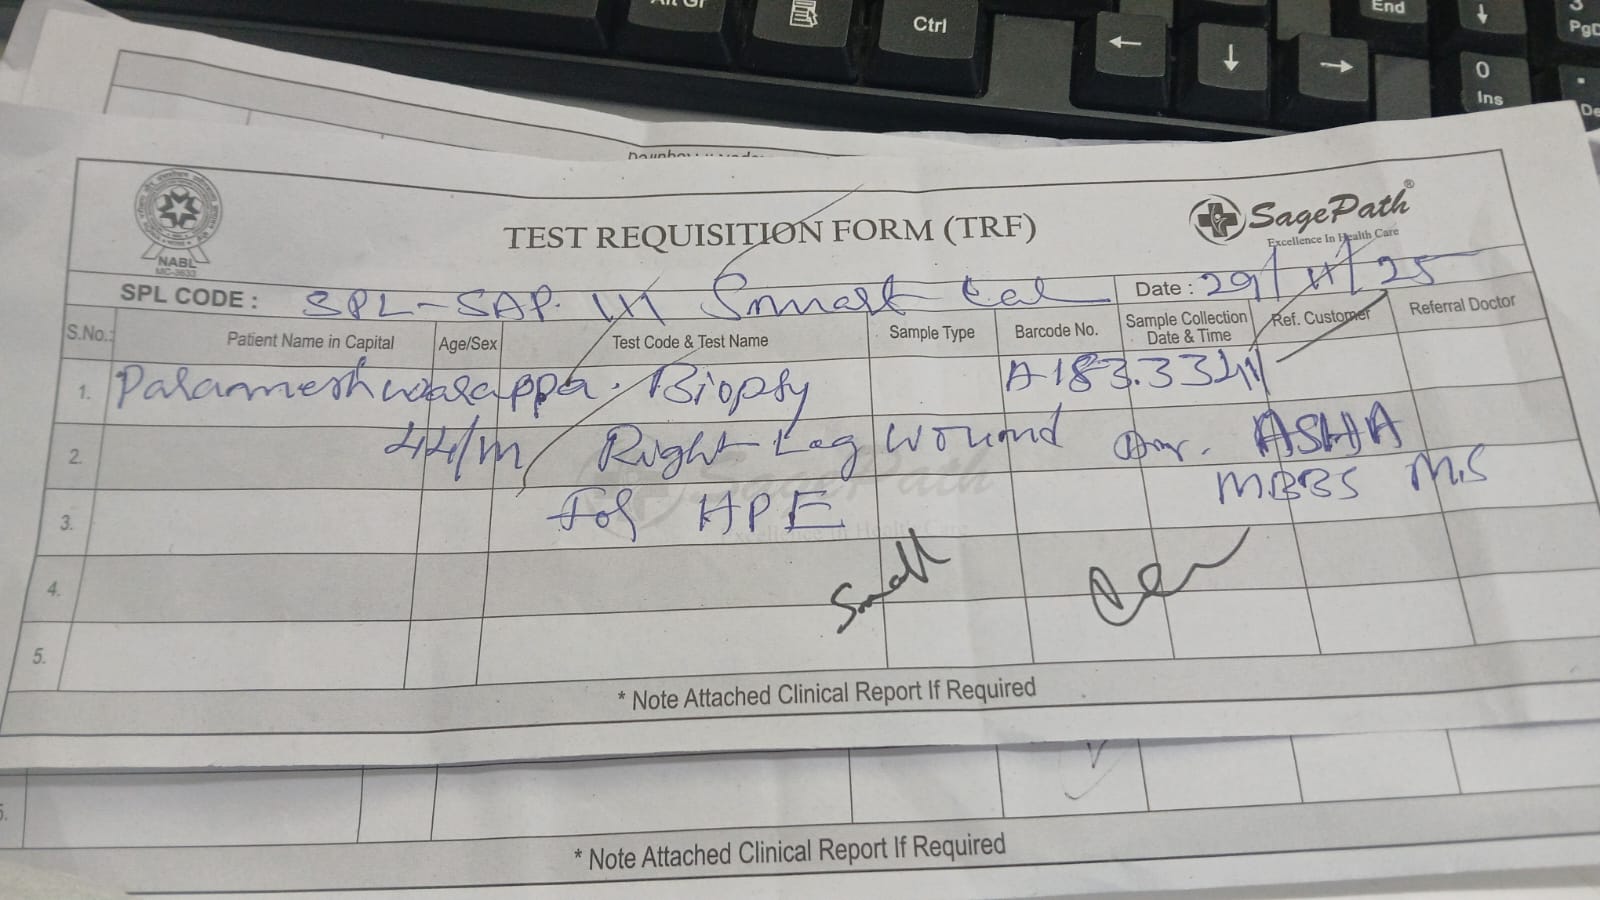 Alt Gr
Ctrl
End
3
PgD
0
Ins
De
NABL
MC-3633
TEST REQUISITION FORM (TRF)
SagePath®
Excellence In Health Care
SPL CODE : SPL-SAP. 111 Smart Lab Date : 29/11/25
S.No.: Patient Name in Capital Age/Sex Test Code & Test Name Sample Type Barcode No. Sample Collection Date & Time Ref. Customer Referral Doctor
1. Parameshwarappa. Biopsy A183.3341
2. 44/m Right Leg wound Dr. ASHA
3. For HPE MBBS MS
SagePath
Excellence In Health Care
4. Small
5.
* Note Attached Clinical Report If Required
5.
* Note Attached Clinical Report If Required